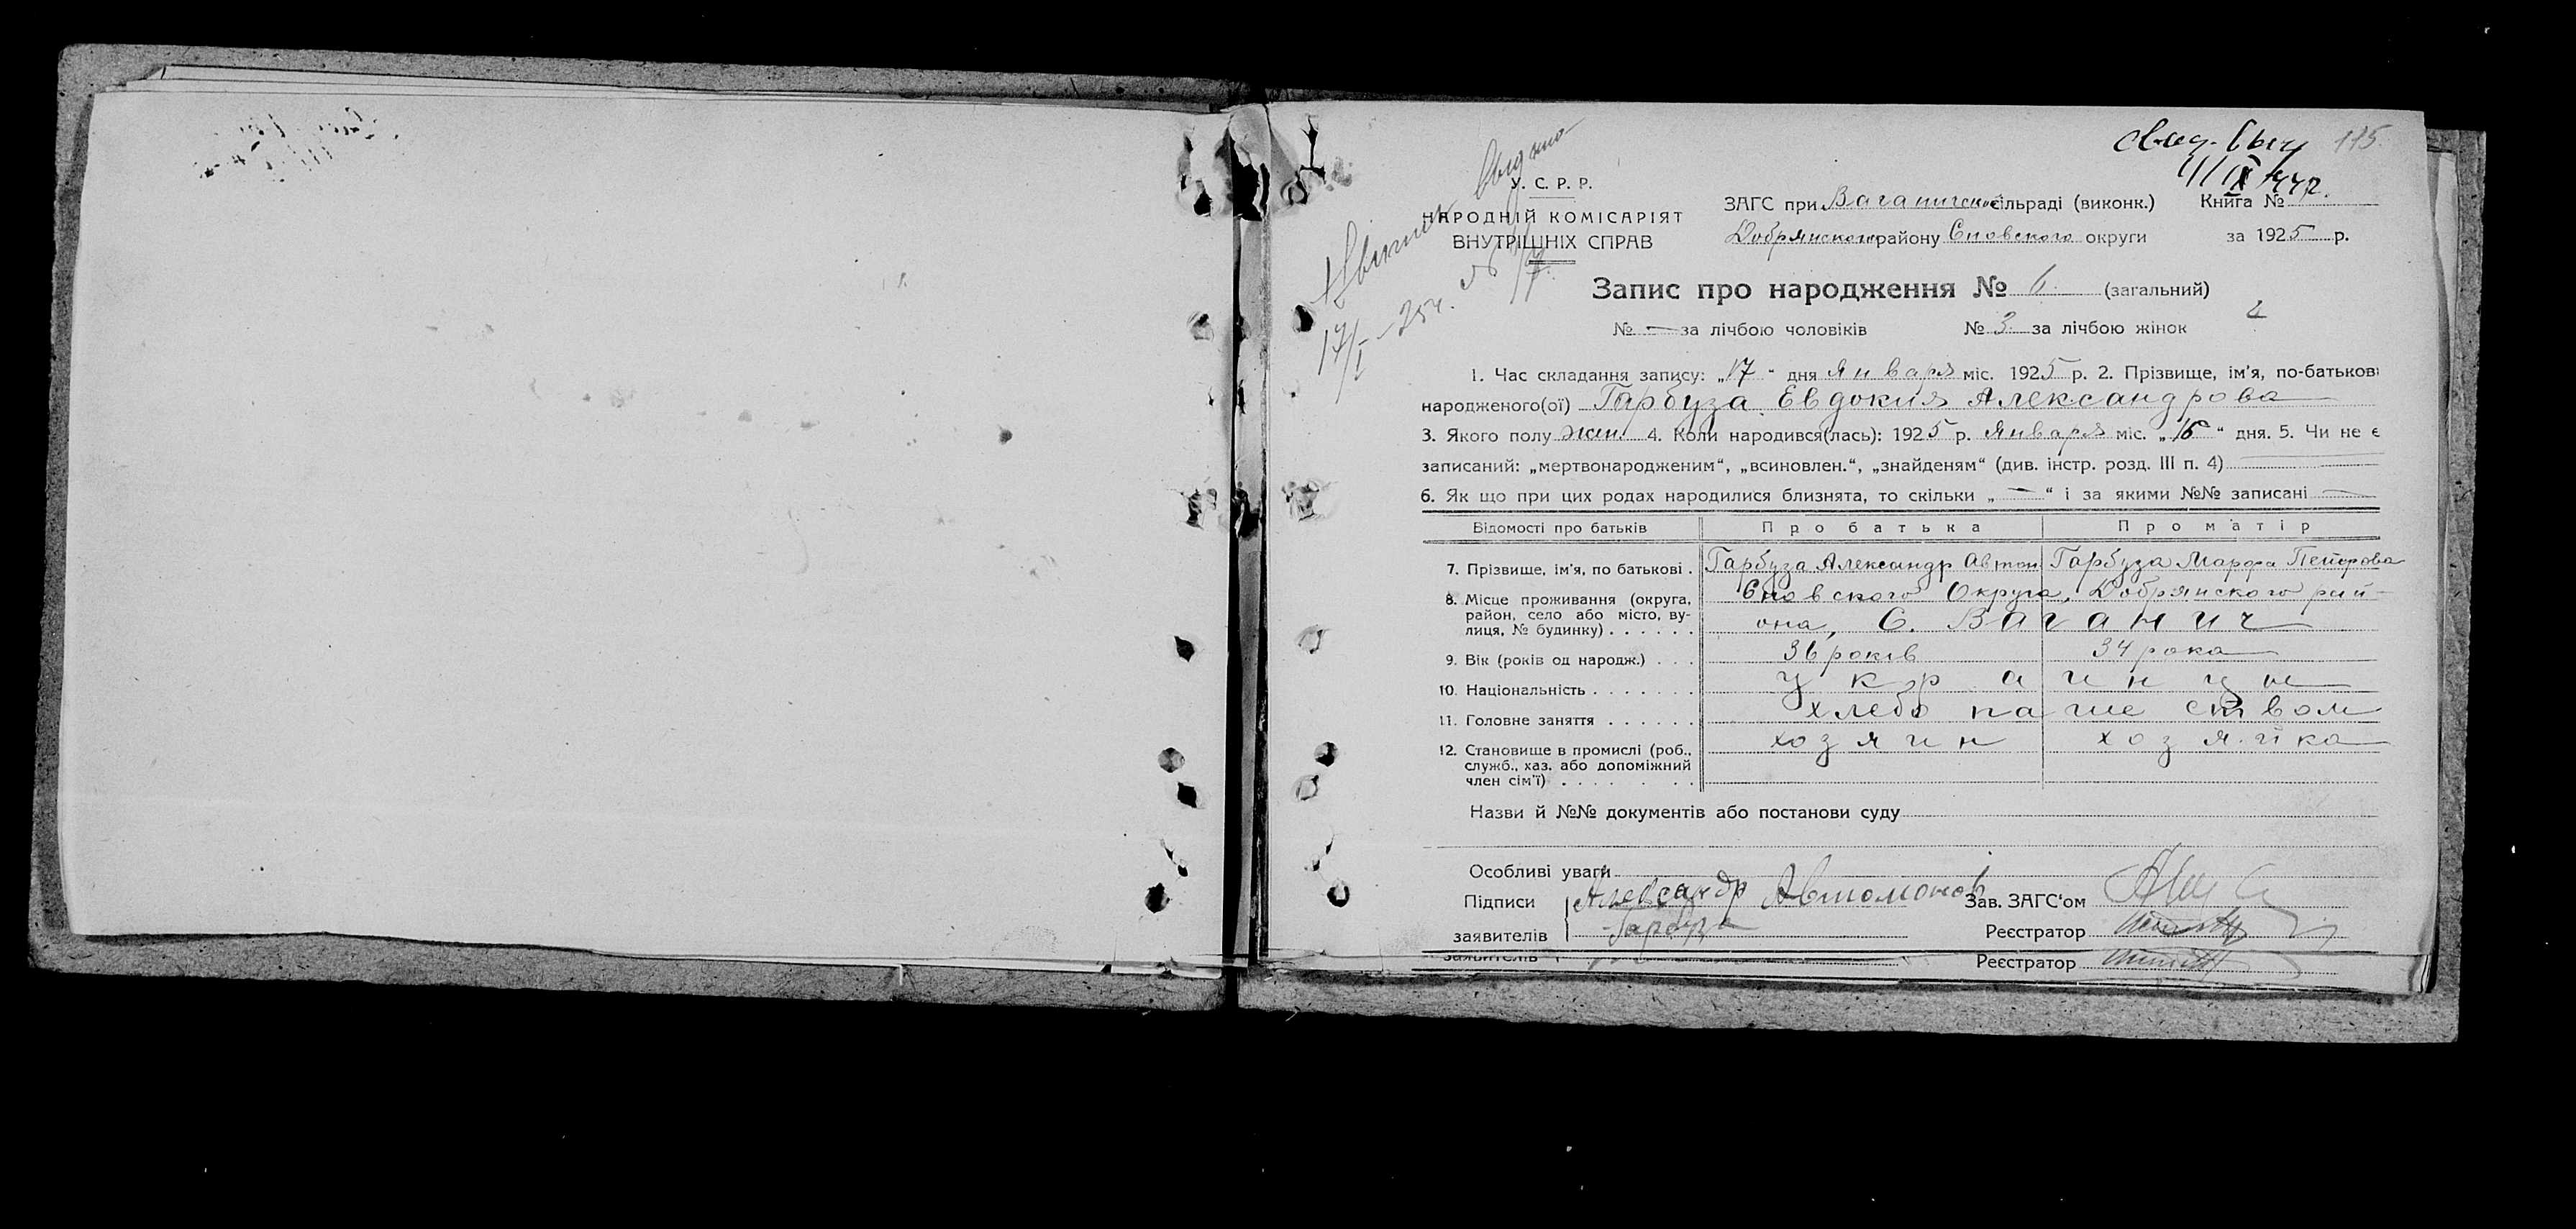 Квиток выдано
17/I – 25 г. № 7.
свид. выд 115.
У. С. Р. Р.
НАРОДНІЙ КОМІСАРІЯТ
ВНУТРІШНІХ СПРАВ
ЗАГС при Ваганичской сільраді (виконк.) Книга №
Добрянского району Сновского округи за 1925 р.
Запис про народження № 6. (загальний)
№ — за лічбою чоловіків № 3. за лічбою жінок
1. Час складання запису: „17“ дня Января міс. 1925 р. 2. Прізвище, ім'я, по-батькові
народженого(ої) Гарбуза Евдокия Александрова
3. Якого полу жен. 4. Коли народився(лась): 1925 р. Января міс. „16“ дня. 5. Чи не є
записаний: „мертвонародженим“, „всиновлен.“, „знайденям“ (див. інстр. розд. III п. 4)
6. Як що при цих родах народилися близнята, то скільки „—“ і за якими №№ записані —
Відомості про батьків Про батька Про матір
7. Прізвище, ім'я, по батькові . Гарбуза Александр Автон Гарбуза Марфа Петрова
8. Місце проживання (округа, район, село або місто, вулиця, № будинку) . . . . . . Сновского Округа, Добрянского рай-
она, С. Ваганич
9. Вік (років од народж.) . . . 36 років 34 рока
10. Національність . . . . . . . украинцы
11. Головне заняття . . . . . . хлебопашеством
12. Становище в промислі (роб., служб., хаз. або допоміжний член сім'ї) . . . . . . . хозяин хозяйка
Назви й №№ документів або постанови суду
Особливі уваги
Підписи Александр Автомонов Зав. ЗАГС'ом
заявителів Гарбуза Реєстратор
заявителів Реєстратор